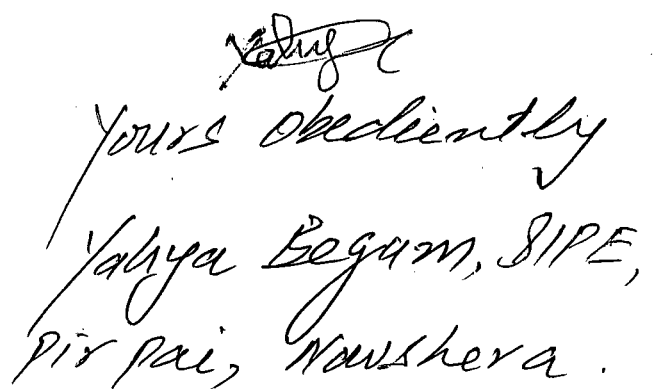 Yahya
Yours obediently
Yahya Begam, SIPE,
Pir Pai, Nowshera.